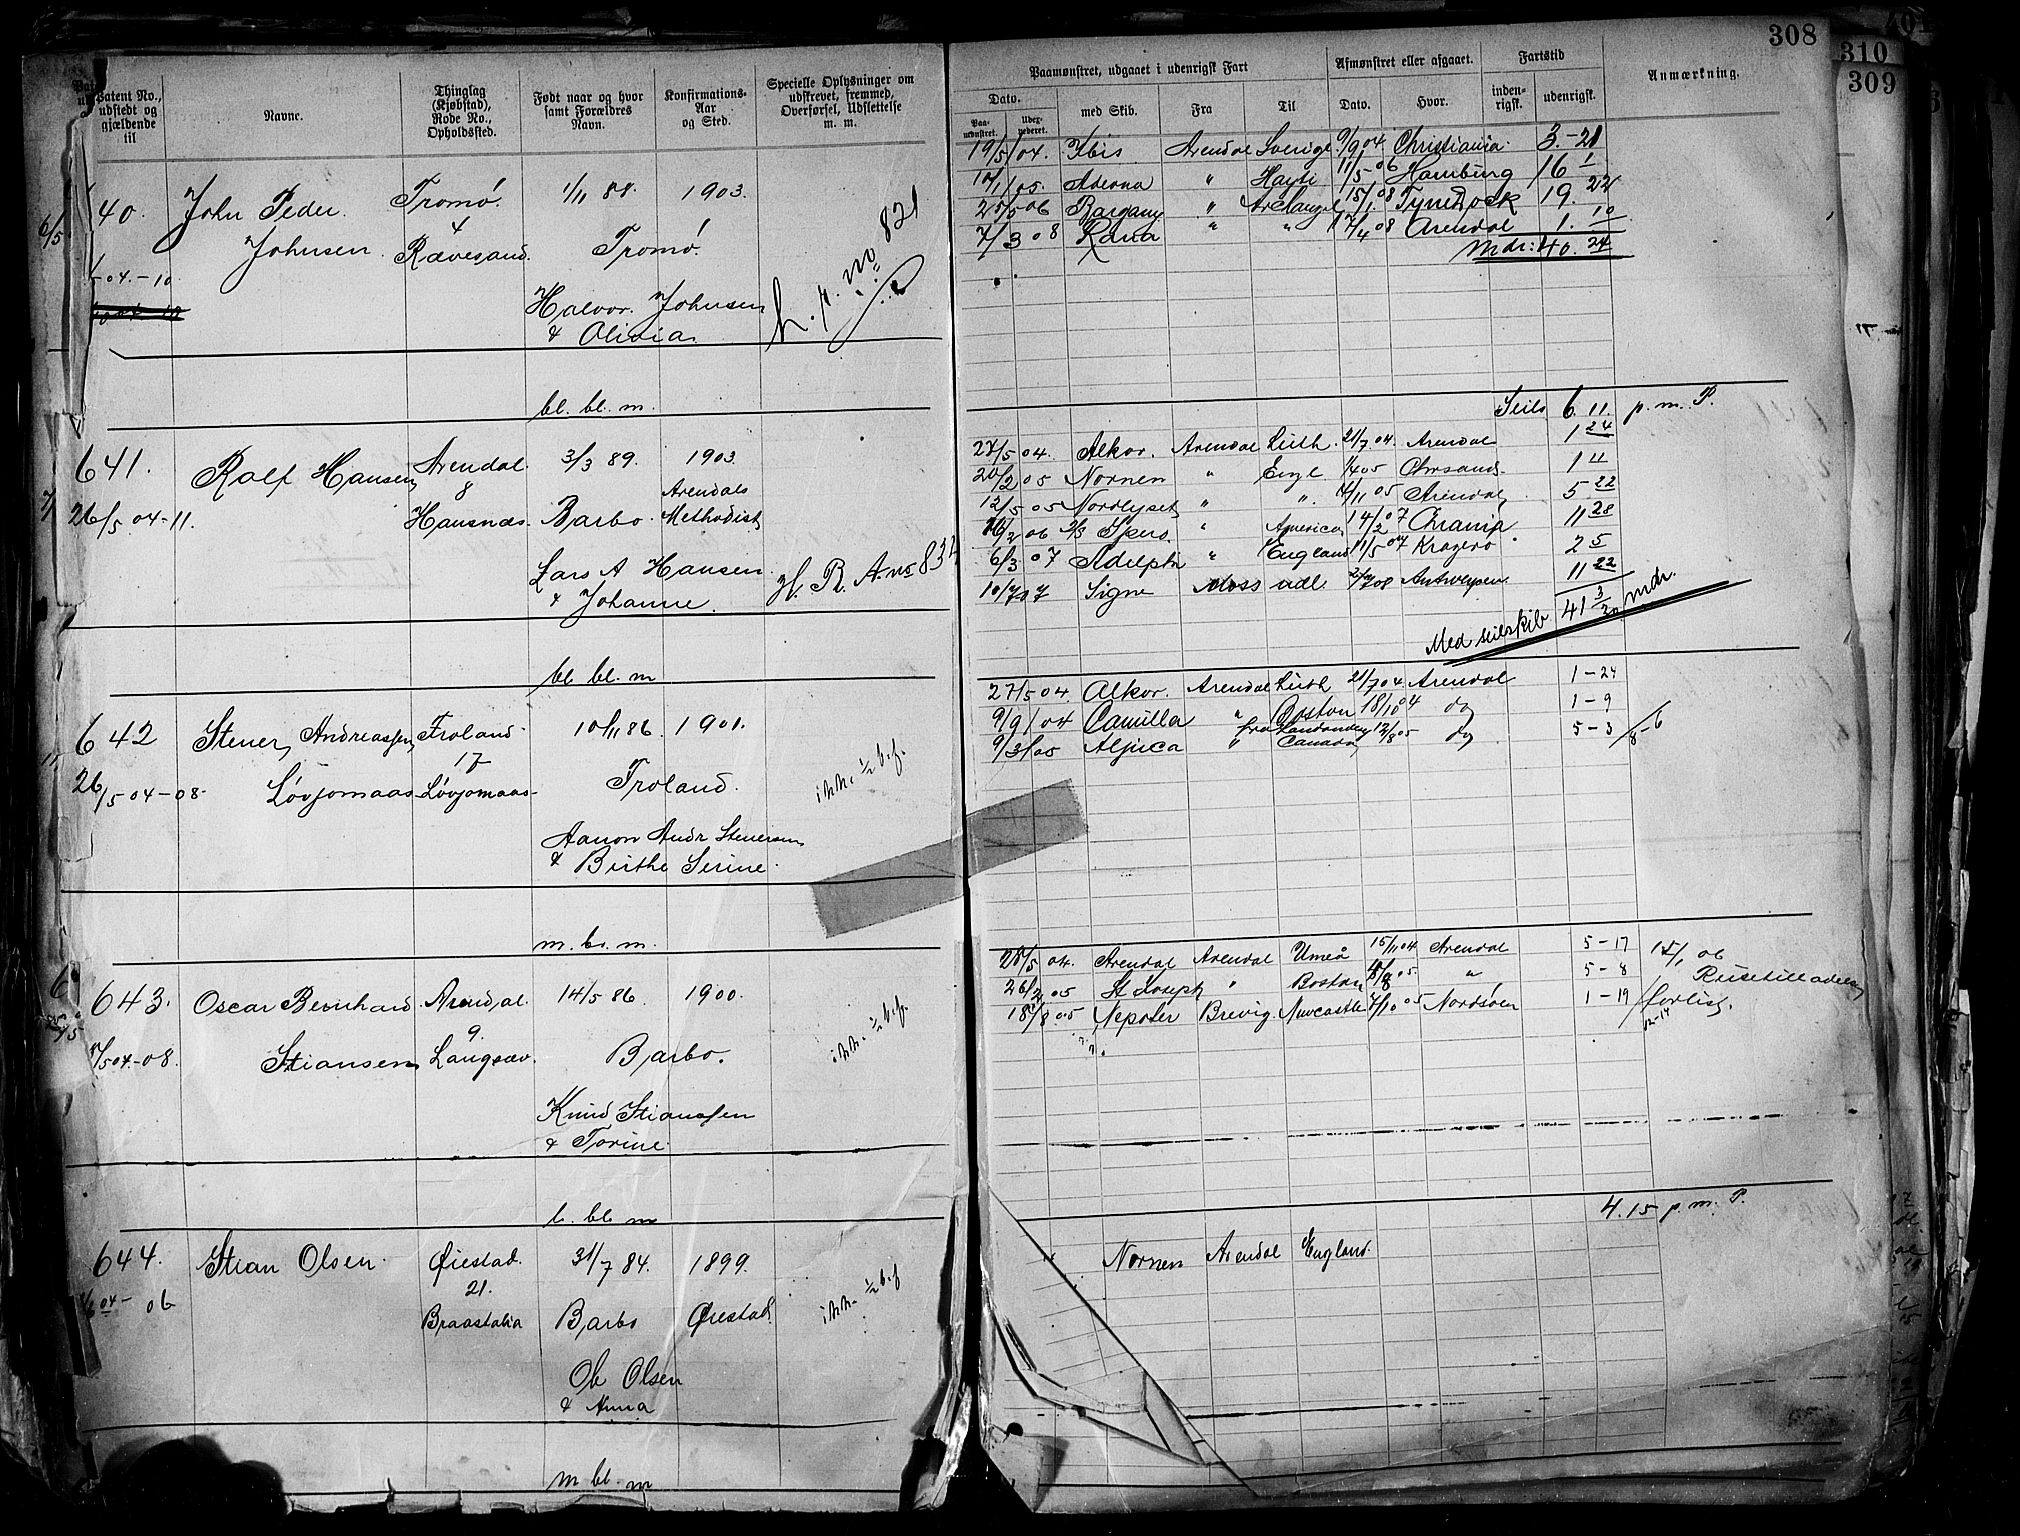 308
310
309
Patent No., udstedt og gjældende til
Navne.
Thinglag (Kjøbstad), Rode No., Opholdssted.
Født naar og hvor samt Forældres Navn.
Konfirmations-Aar og Sted.
Specielle Oplysninger om udskrevet, fremmed, Overførsel, Udslettelse m. m.
Paamønstret, udgaaet i udenrigsk Fart
Afmønstret eller afgaaet.
Fartstid
Anmærkning.
Dato.
med Skib.
Fra
Til
Dato.
Hvor.
inden-rigsk.
udenrigsk.
40. John Peder Tromø. 1/11 88 1903.
Johnsen 4 Rævesand. Tromø.
04.-10
Halvor Johnsen
& Olivia
no 821
bl. bl. m.
19/5 04. Ibis Arendal Sverige 9/9 04 Christiania 3.-21
Hayti 11/5 06 Hamburg 16 1
25/5 06 Bargany " Archangel 15/1 08 Tynedock 19. 22
7/3 08 Rana " " 17/4 08 Arendal 1. 10
Mdr: 40. 24
641. Ralf Hansen Arendal 3/3 89. 1903.
8 Arendals
26/5 04-11. Hausnæs. Barbo. Methodist
Lars A Hansen
& Johanne
bl bl. m
Seils 6. 11. p. m. P.
27/5 04. Alkor. Arendal Leith 21/7 04. Arendal 1 24
20/2 05 Nornen " Engl 1/4 05 Chrsands. 1 11
12/5 05 Nordlyset " " 4/11 05 Arendal 5 22
America 14/2 07 Chrania 11 28
6/3 07 Adelph " England 11/5 07 Kragerø 2 5
10/7 07 Signe Moss udl. Antwerpen 11 22
Med seilskib 41 3/20 mdr.
642 Stener Andreassen Froland 10/11 86 1901.
17
26/5 04-08. Løvjomaas Løvjomaas Froland.
Aanon Andr Stenersen
& Birthe Serine.
m. bl. m.
27/5 04. Alkor. Arendal Leith 21/7 04. Arendal 1-24
9/9 04 Camilla " Boston 18/10 04 do 1-9
9/3 05 " Canada 12/8 05 do 5-3 8-6
643. Oscar Bernhard Arendal 14/5 86. 1900.
9.
04-08. Stiansen Langsæv. Barbo.
Knud Stiansen
& Torine.
b. bl. m
5 04. Arendal Arendal Umeå 15/11 04 Arendal 5-17
26/2 05 St Joseph " Boston 05. " 5-8
18/8 05 Nepster Brevig Newcastle 7/10 05 Nordsøen 1-19 forlist.
12-14
644. Stian Olsen Øiestad. 31/7 84. 1899.
21.
04- 06 Braastalia Barbo Øiestad.
Ole Olsen
& Anna
m bl. m
4. 15 p. m. P.
Nornen Arendal England.